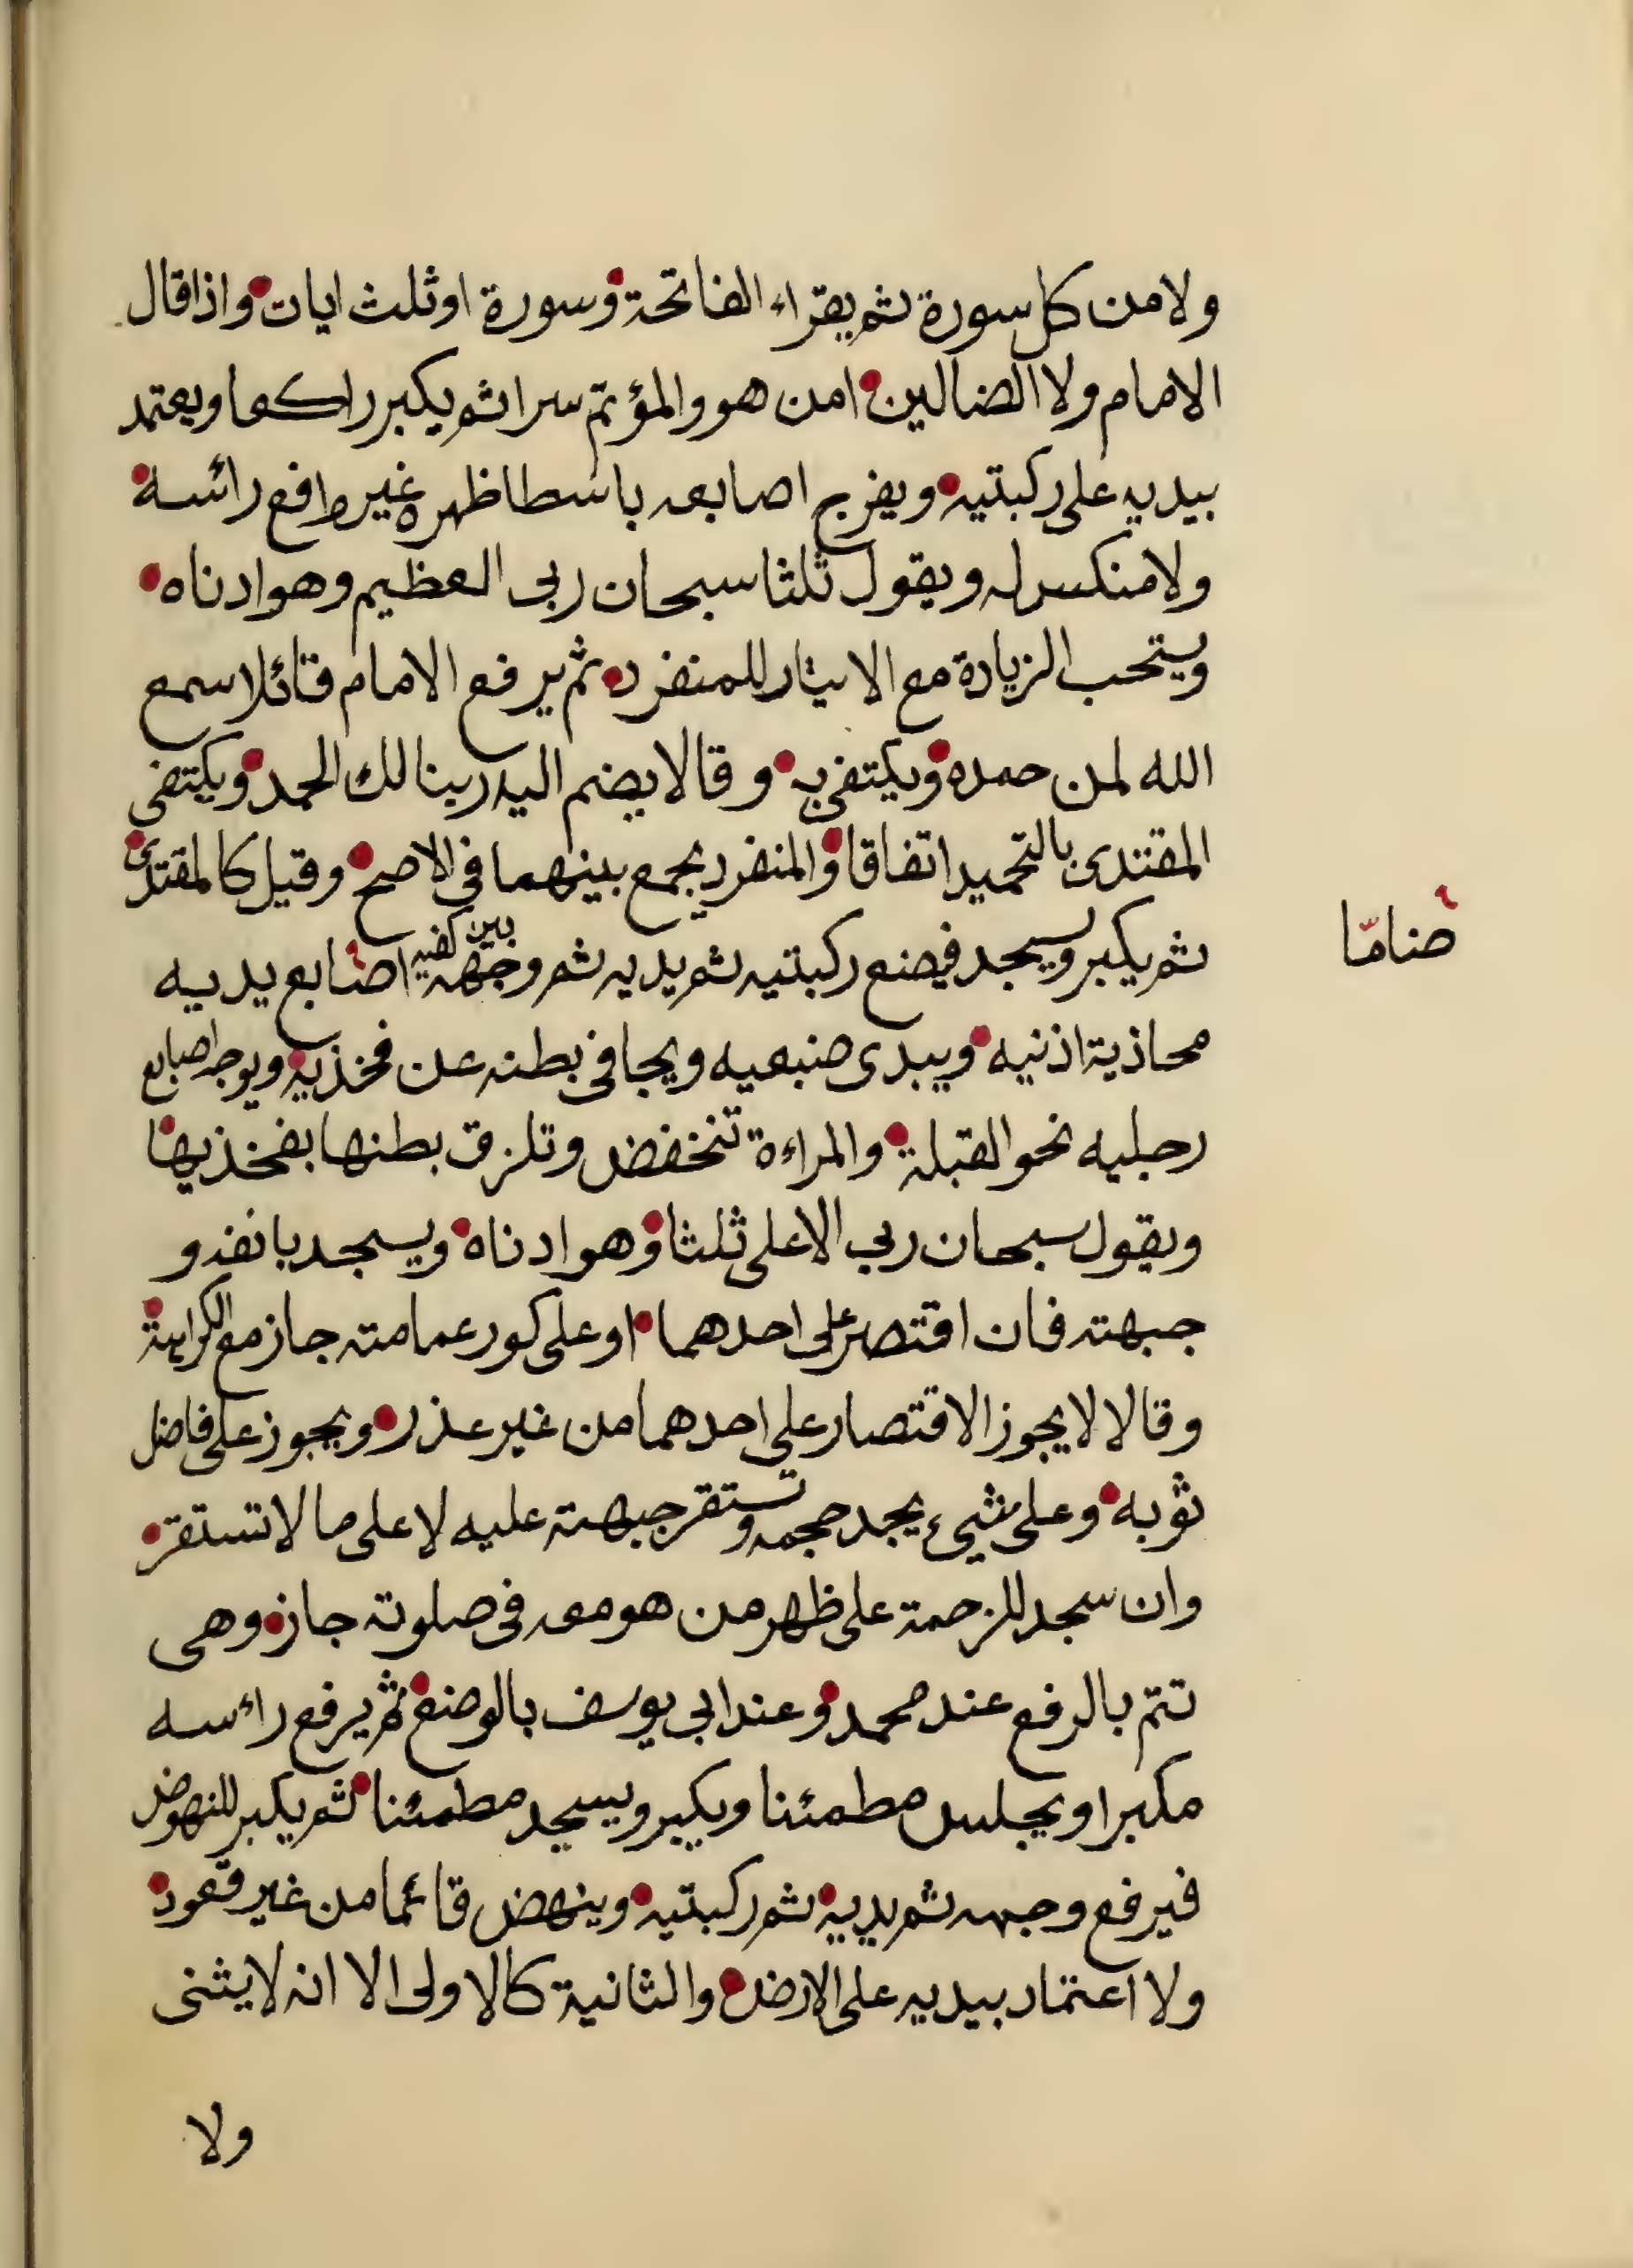 ولا من كل سورة ثم يقراء الفاتحة وسورة او ثلث ايات واذا قال
الامام ولا الضالين امن هو والمؤتم سرا ثم يكبر راكعا ويعتمد
بيديه على ركبتيه ويفرج اصابعه باسطا ظهره غير رافع رائسه
ولا منكس له ويقول ثلثا سبحان ربى العظيم وهو ادناه
ويستحب الزيادة مع الايتار للمنفرد ثم يرفع الامام قائلا سمع
الله لمن حمده ويكتفى به وقالا يضم اليه ربنا لك الحمد ويكتفى
المقتدى بالتحميد اتفاقا والمنفرد يجمع بينهما فى الاصح وقيل كالمقتدى
ثم يكبر ويسجد فيضع ركبتيه ثم يديه ثم وجهه بين كفيه اصابع يديه
ضاما
محاذية اذنيه ويبدى ضبعيه ويجافى بطنه عن فخذيه ويوجه اصابع
رجليه نحو القبلة والمراءة تنخفض وتلزق بطنها بفخذيها
ويقول سبحان ربى الاعلى ثلثا وهو ادناه ويسجد بانفه و
جبهته فان اقتصر على احدهما او على كور عمامته جاز مع الكراهة
وقالا لا يجوز الاقتصار على احدهما من غير عذر ويجوز على فاضل
ثوبه وعلى شيء يجد حجمه وتستقر جبهته عليه لا على ما لا تستقر
وان سجد للزحمة على ظهر من هو معه فى صلوته جاز وهى
تتم بالرفع عند محمد وعند ابى يوسف بالوضع ثم يرفع رائسه
مكبرا ويجلس مطمئنا ويكبر ويسجد مطمئنا ثم يكبر للنهوض
فيرفع وجهه ثم يديه ثم ركبتيه وينهض قائما من غير قعود
ولا اعتماد بيديه على الارض والثانية كالاولى الا انه لا يثنى
ولا